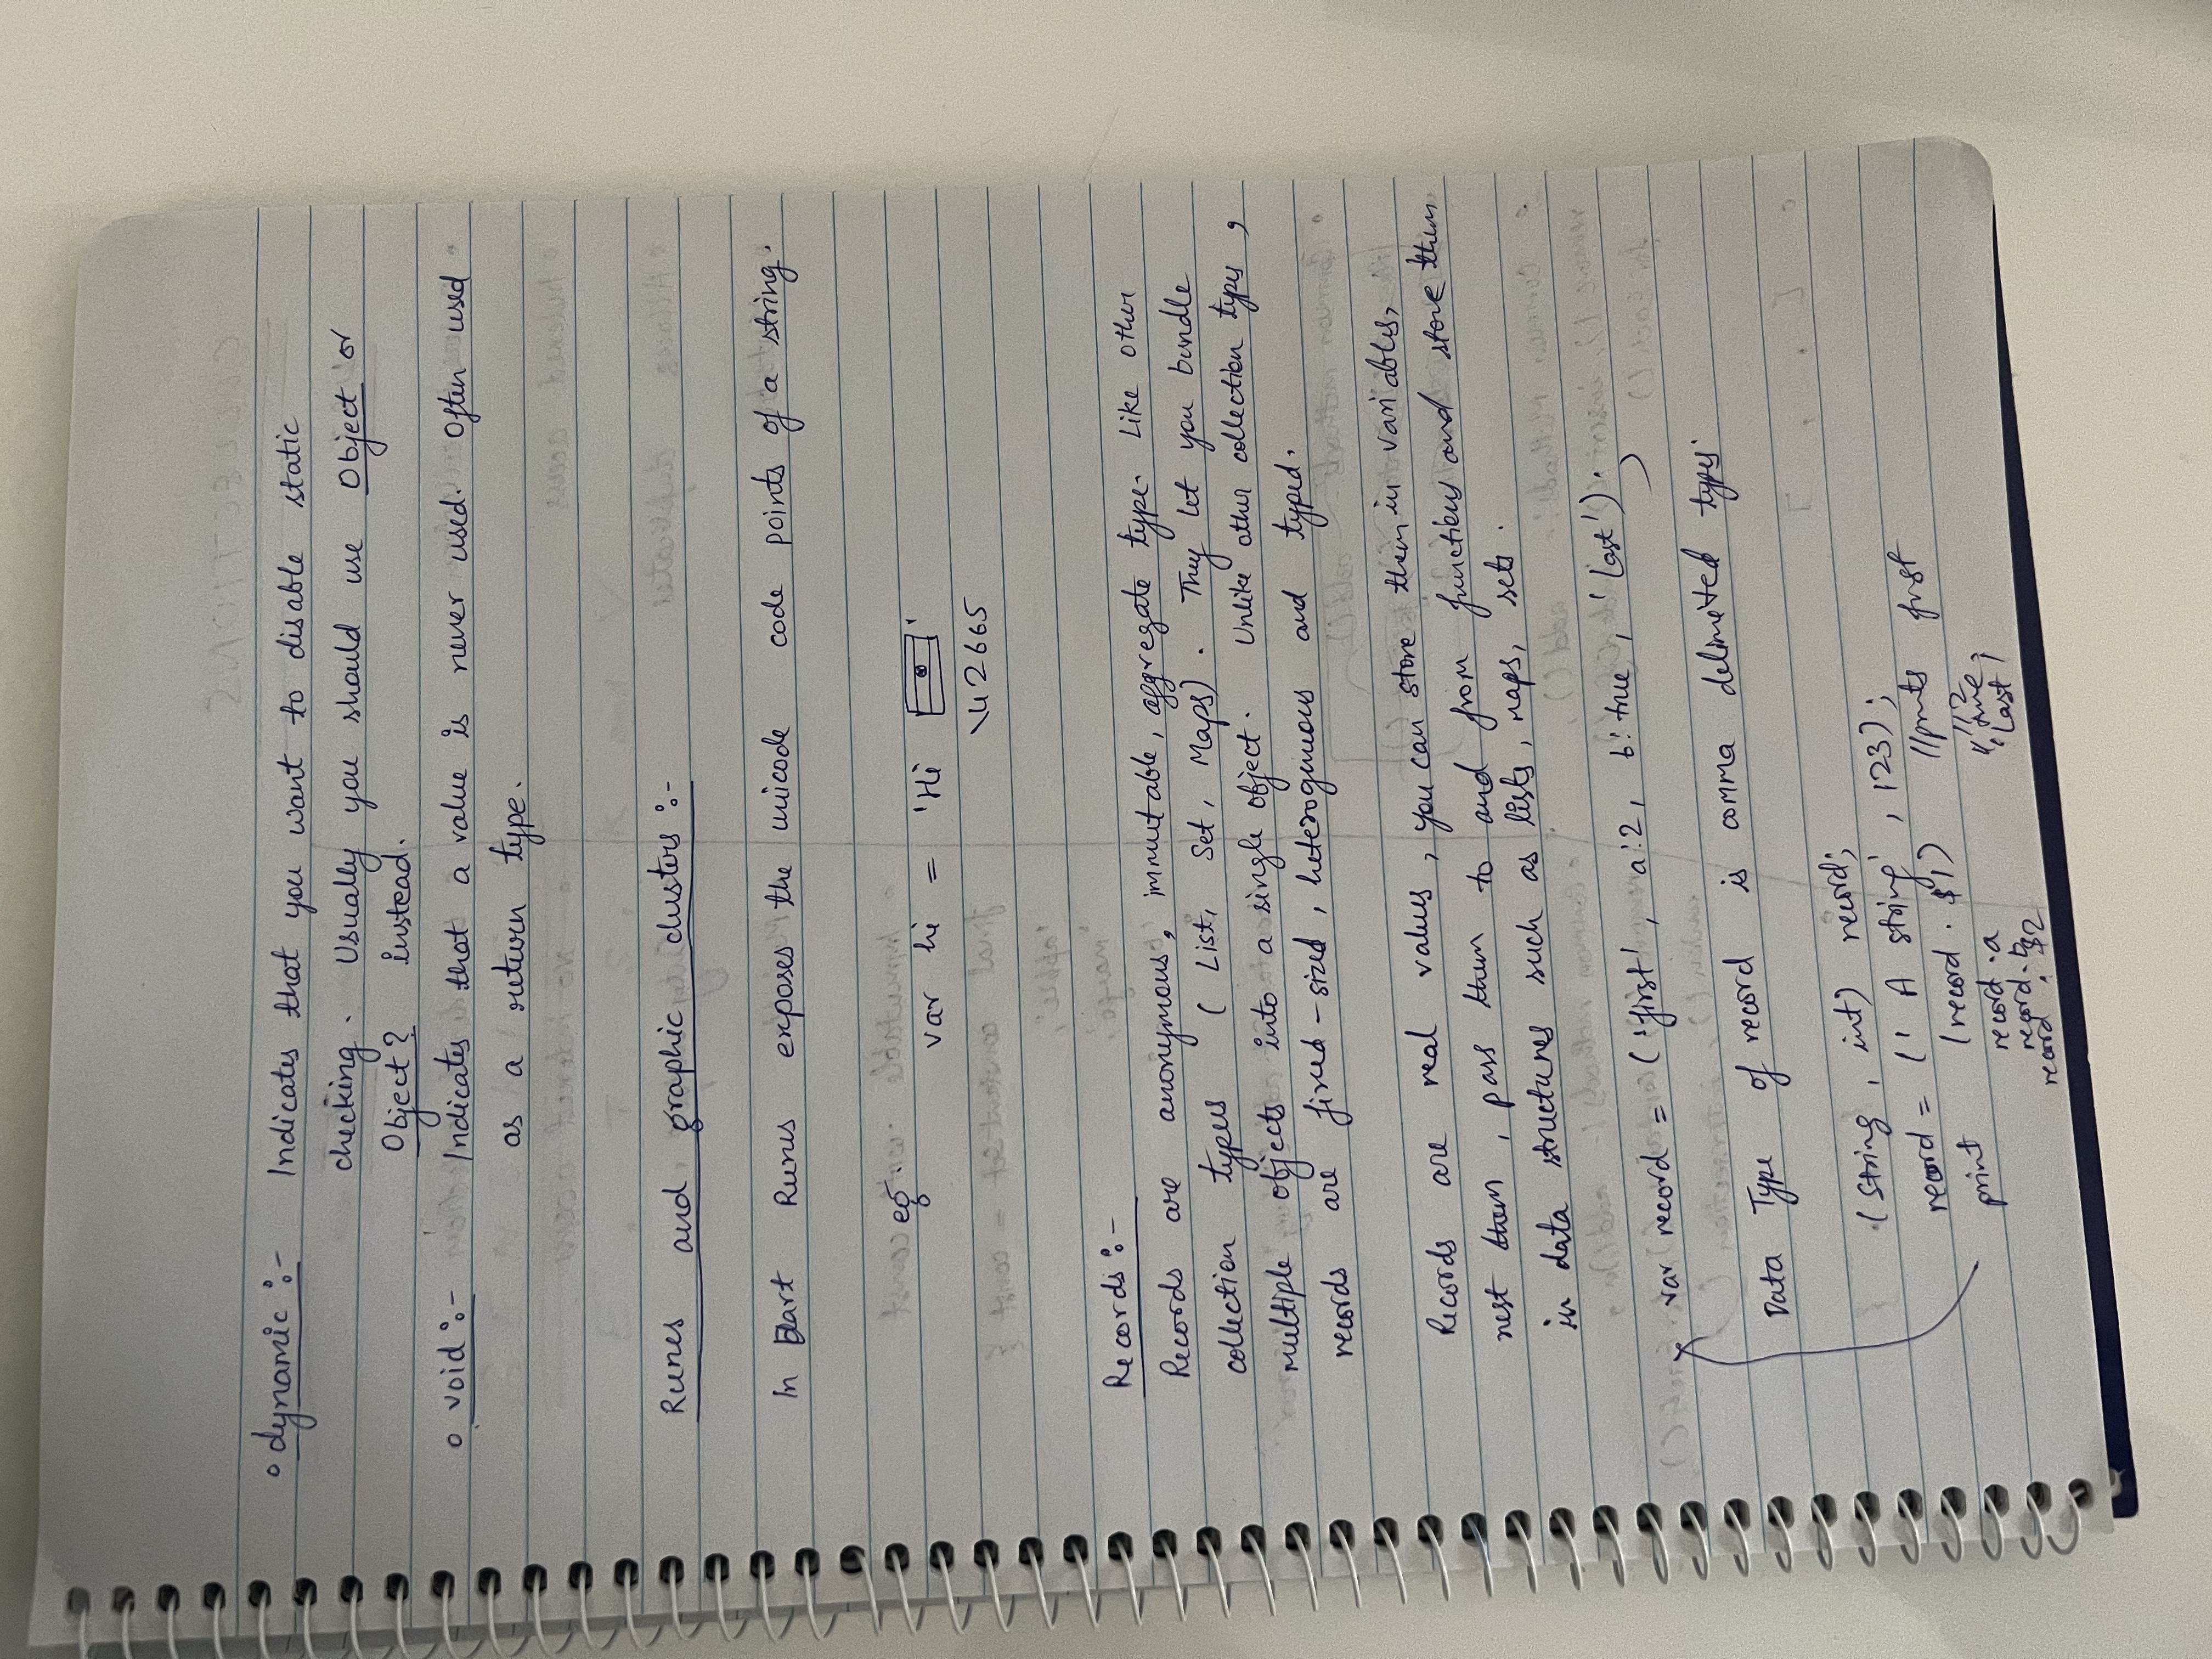 o dynamic :- Indicates that you want to disable static
checking. Usually you should use Object or
Object? instead.
o void :- Indicates that a value is never used. Often used
as a return type.
Runes and graphic clusters :-
In Dart Runes exposes the unicode code points of a string.
eg.
var hi = 'Hi '
\u2665
Records :-
Records are anonymous, immutable, aggregate type. Like other
collection types ( List, Set, Maps). They let you bundle
multiple objects into a single object. Unlike other collection types,
records are fixed-sized, heterogenuous and typed.
Records are real values, you can store them in variables,
nest them, pass them to and from functions and store them
in data structures such as lists, maps, sets.
var record = ('first', a:2, b:true, 'last');
Data Type of record is comma delimeted types.
(String, int) record;
record = (' A string', 123);
print (record . $1) //prints first
record . a //2
record . b // true;
record . $2 'last'